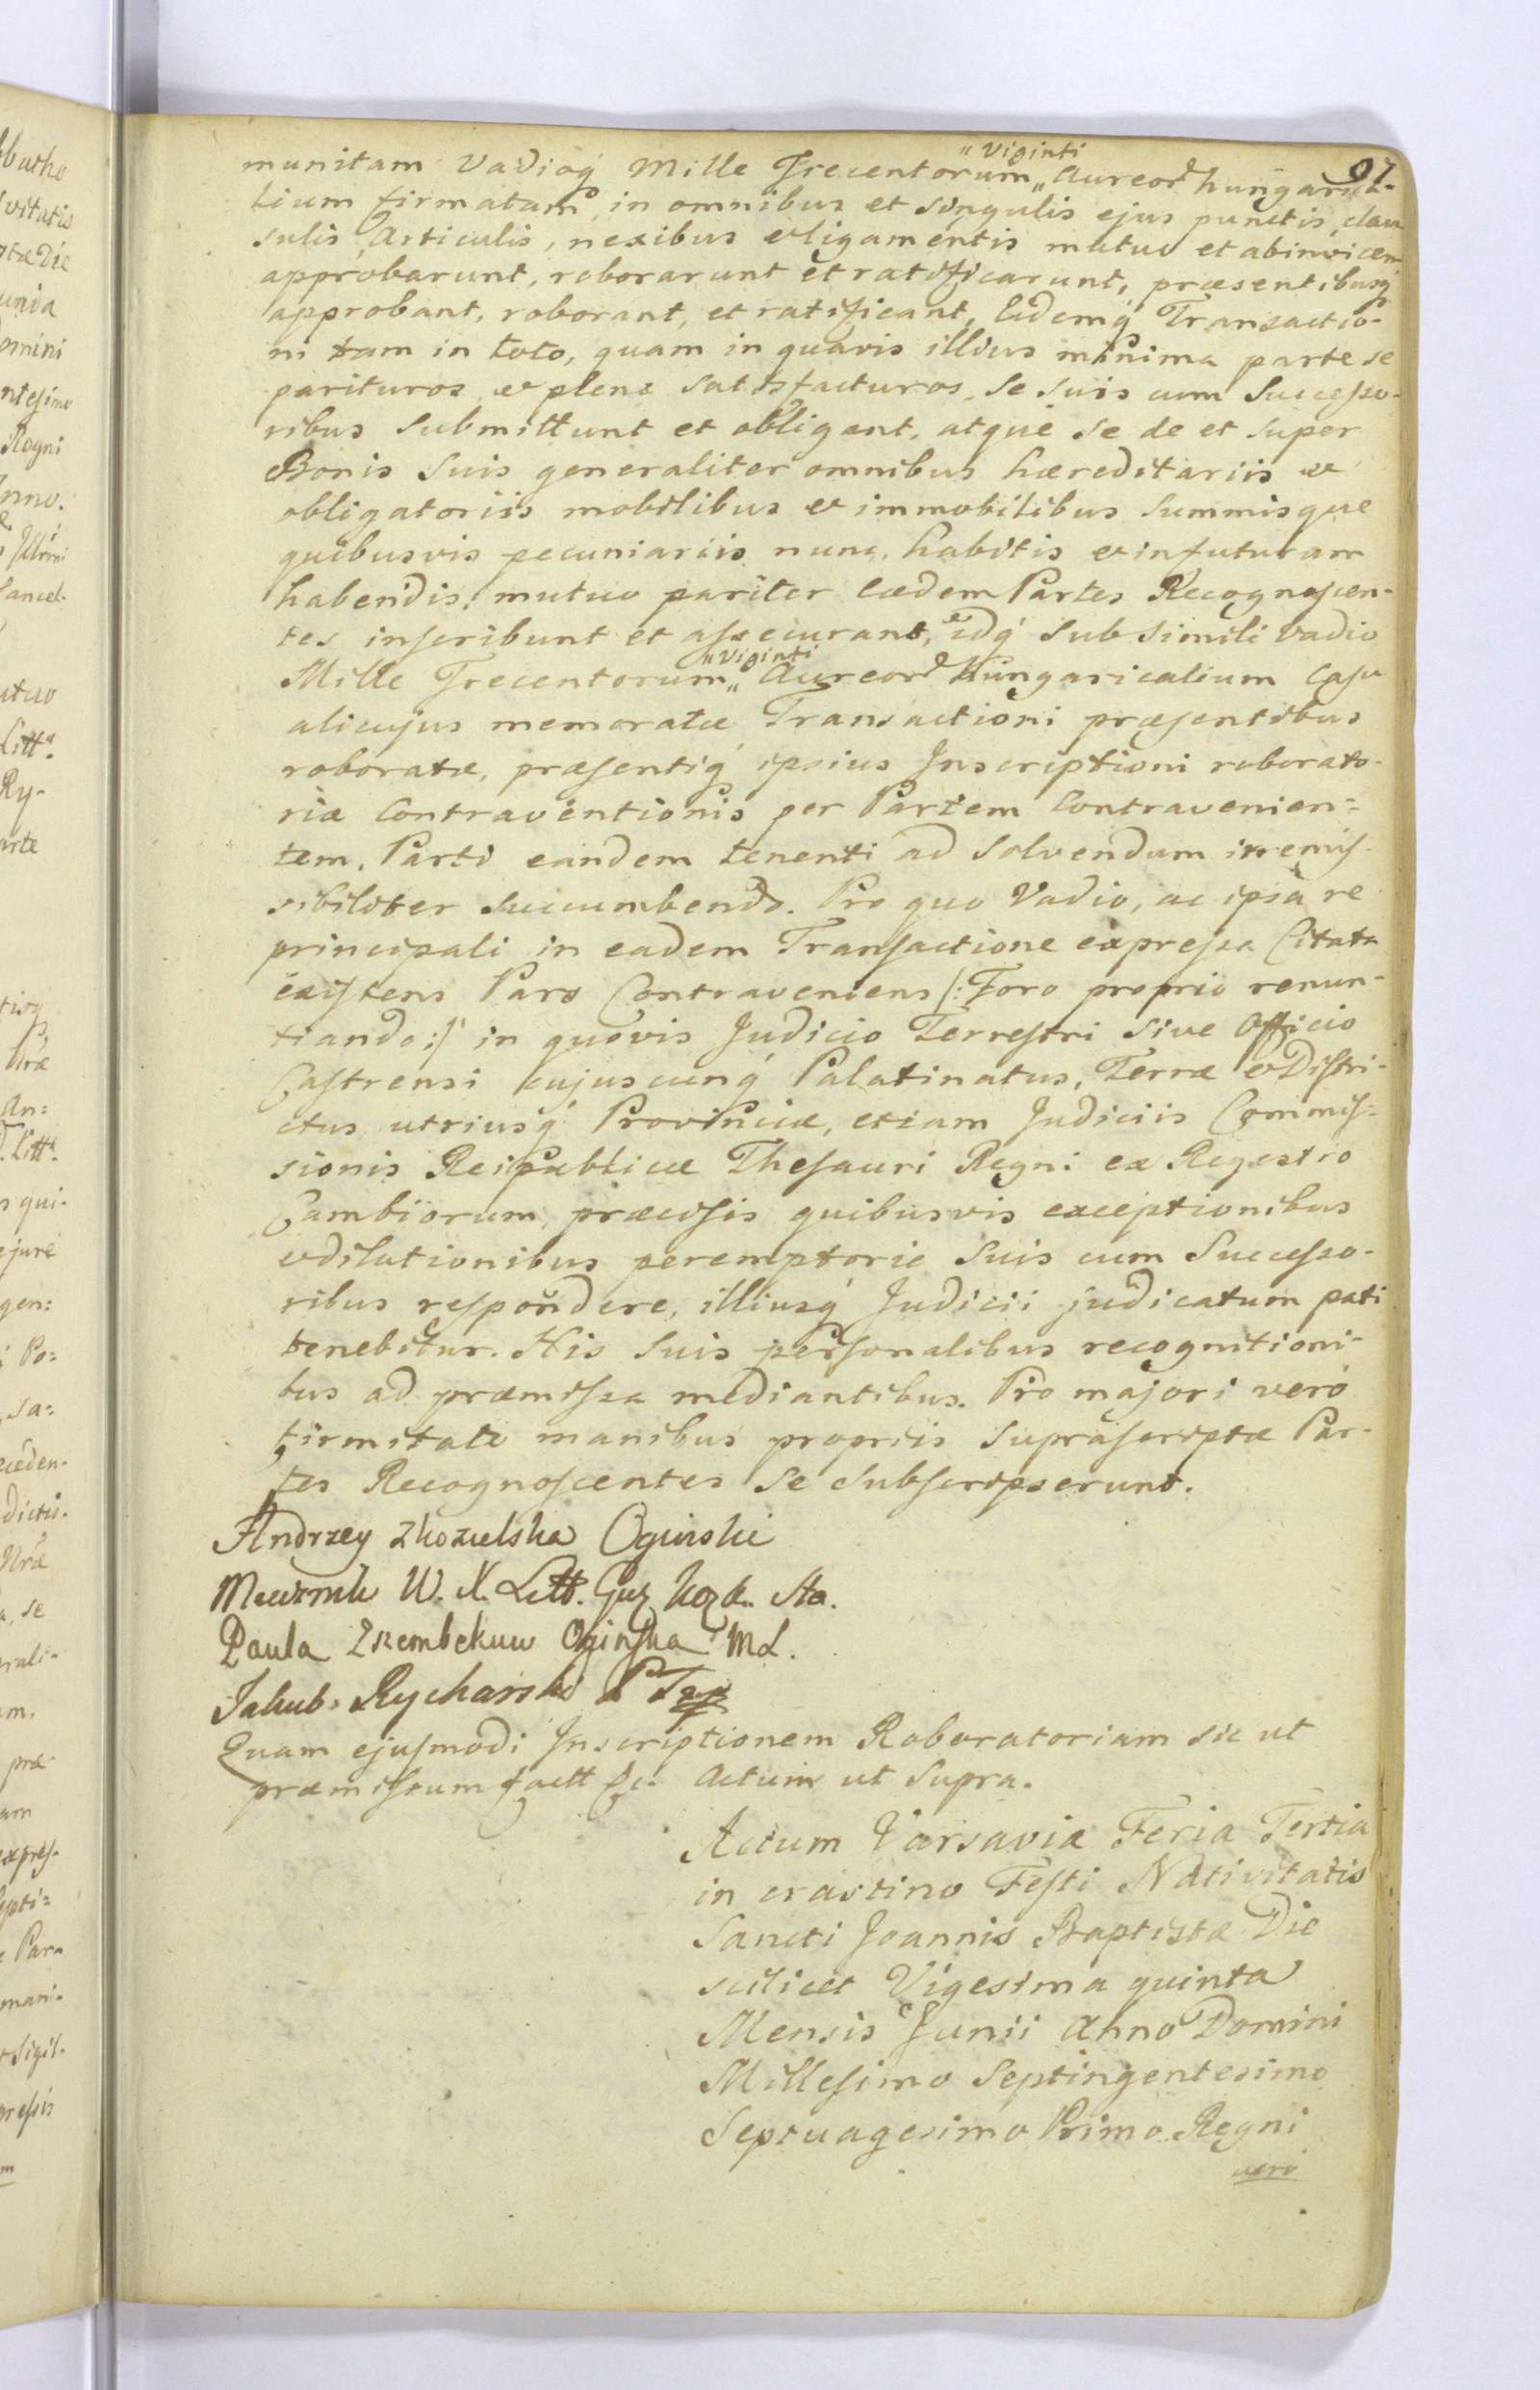 97
munitam Vadioq́ Mille Trecentorum „Viginti„ Aureorͩ hungarica-
lium firmatam, in omnibus et singulis ejus punctis, clau
sulis Articulis, nexibus et ligamentis mutuo et abinvicem
approbarunt, roborarunt et ratificarunt, præsentibusq́
approbant, roborant, et ratificant, Eidemq́ Transactio-
ni tam in toto, quam in quavis illius minima parte se
parituros et plene satisfacturos, se suis cum Successo-
ribus submittunt et obligant, atque se de et super
Bonis suis generaliter omnibus hæreditariis et
obligatoriis mobilibus et immobilibus Summisque
quibusvis pecuniariis nunc habitis et in futurum
habendis, mutuo pariter Eædem Partes Recognoscen-
tes inscribunt et assecurant, idq́ sub simili vadio
Mille Trecentorum „Viginti„ Aureorͩ Hungaricalium Casu
alicujus memoratæ Transactioni præsentibus
roboratæ, præsentiq́ ipsius Inscriptioni roborato-
riæ Contraventionis per Partem Contravenien=
tem, Parti eandem tenenti ad solvendum irremis-
sibiliter succumbendo. Pro quo Vadio, ac ipsa re
principali in eadem Transactione expressa Citata
existens Pars Contraveniens /: Foro proprio renun-
tiando :/ in quovis Judicio Terrestri sive Officio
Castrensi cujuscunq́ Palatinatus, Terræ et Distri-
ctus utriusq́ Provinciæ, etiam Judiciis Commis=
sionis Reipublicæ Thesauri Regni ex Regestro
Cambiorum, præcisis quibusvis exceptionibus
et dilationibus peremptorie suis cum Successo-
ribus respondere, illiusq́ Judicii judicatum pati
tenebitur. His suis personalibus recognitioni-
bus ad præmissa mediantibus. Pro majori vero
firmitate manibus propriis suprascriptæ Par-
tes Recognoscentes se subscripserunt.
Andrzey zkozielska Oginski
W. X. Litt.
Paula Zszembekuw Oginska
Jakub Rycharski
Quam ejusmodi Inscriptionem Roboratoriam sic ut
præmissum factt &c. Actum ut supra.
Actum Varsaviæ Feria Tertia
in crastino Festi Nativitatis
Sancti Joannis Baptistæ Die
scilicet Vigesima quinta
Mensis Junii Anno Domini
Millesimo Septingentesimo
Septuagesimo Primo Regni
vero